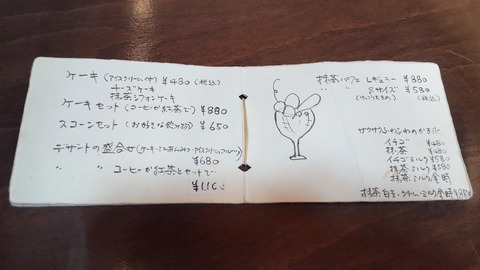 ケーキ(アイスクリーム付) ¥480 (税込)
チーズケーキ
抹茶シフォンケーキ
ケーキセット(コーヒーか紅茶で) ¥880
スコーンセット (お好きな飲み物) ¥650
デザートの盛合せ(ケーキ・アイスクリーム・フルーツ)
¥680
〃 〃 コーヒーか紅茶とセットで
¥1,100
抹茶パフェ レギュラー ¥880
Sサイズ ¥580
(税込)
サクサクふわふわのかき氷
イチゴ ¥480
抹茶 ¥480
イチゴミルク ¥580
抹茶ミルク ¥580
抹茶ミルク金時
抹茶白玉クリームミルク金時 ¥880